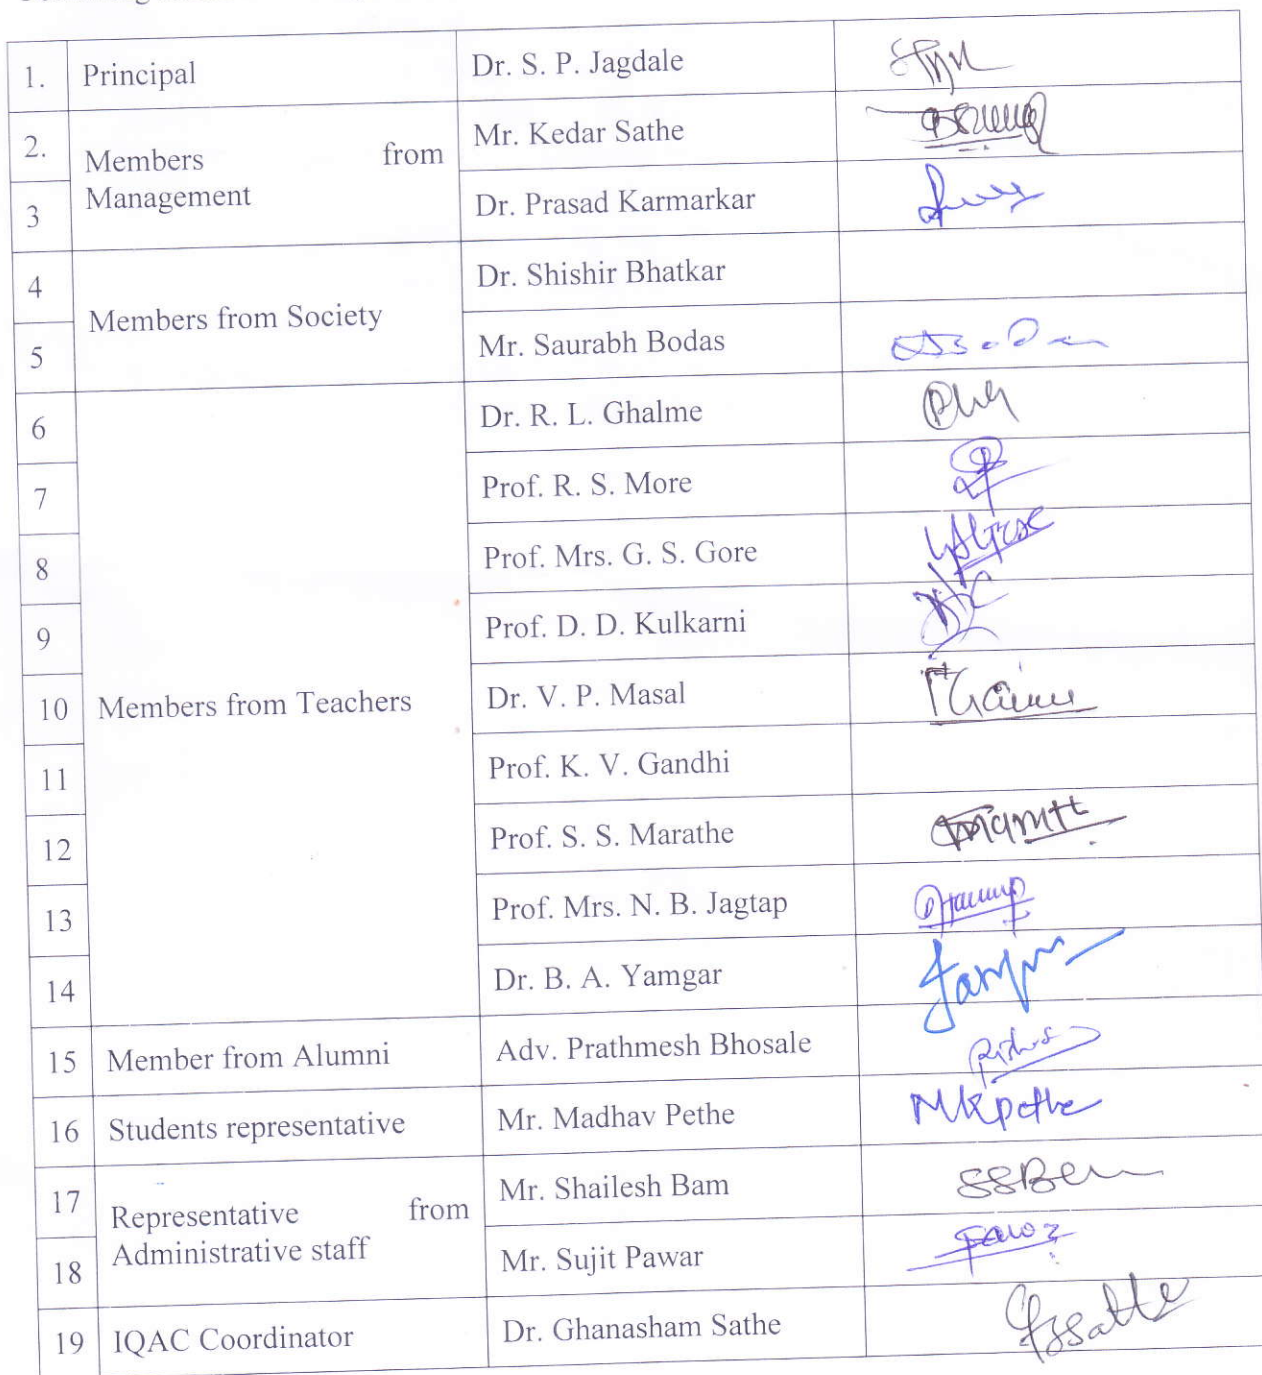 1. Principal Dr. S. P. Jagdale
2. Members from Management Mr. Kedar Sathe
3 Dr. Prasad Karmarkar
4 Members from Society Dr. Shishir Bhatkar
5 Mr. Saurabh Bodas
6 Dr. R. L. Ghalme
7 Prof. R. S. More
8 Prof. Mrs. G. S. Gore
9 Prof. D. D. Kulkarni
10 Members from Teachers Dr. V. P. Masal
11 Prof. K. V. Gandhi
12 Prof. S. S. Marathe
13 Prof. Mrs. N. B. Jagtap
14 Dr. B. A. Yamgar
15 Member from Alumni Adv. Prathmesh Bhosale
16 Students representative Mr. Madhav Pethe MKpethe
17 Representative from Administrative staff Mr. Shailesh Bam
18 Mr. Sujit Pawar
19 IQAC Coordinator Dr. Ghanasham Sathe